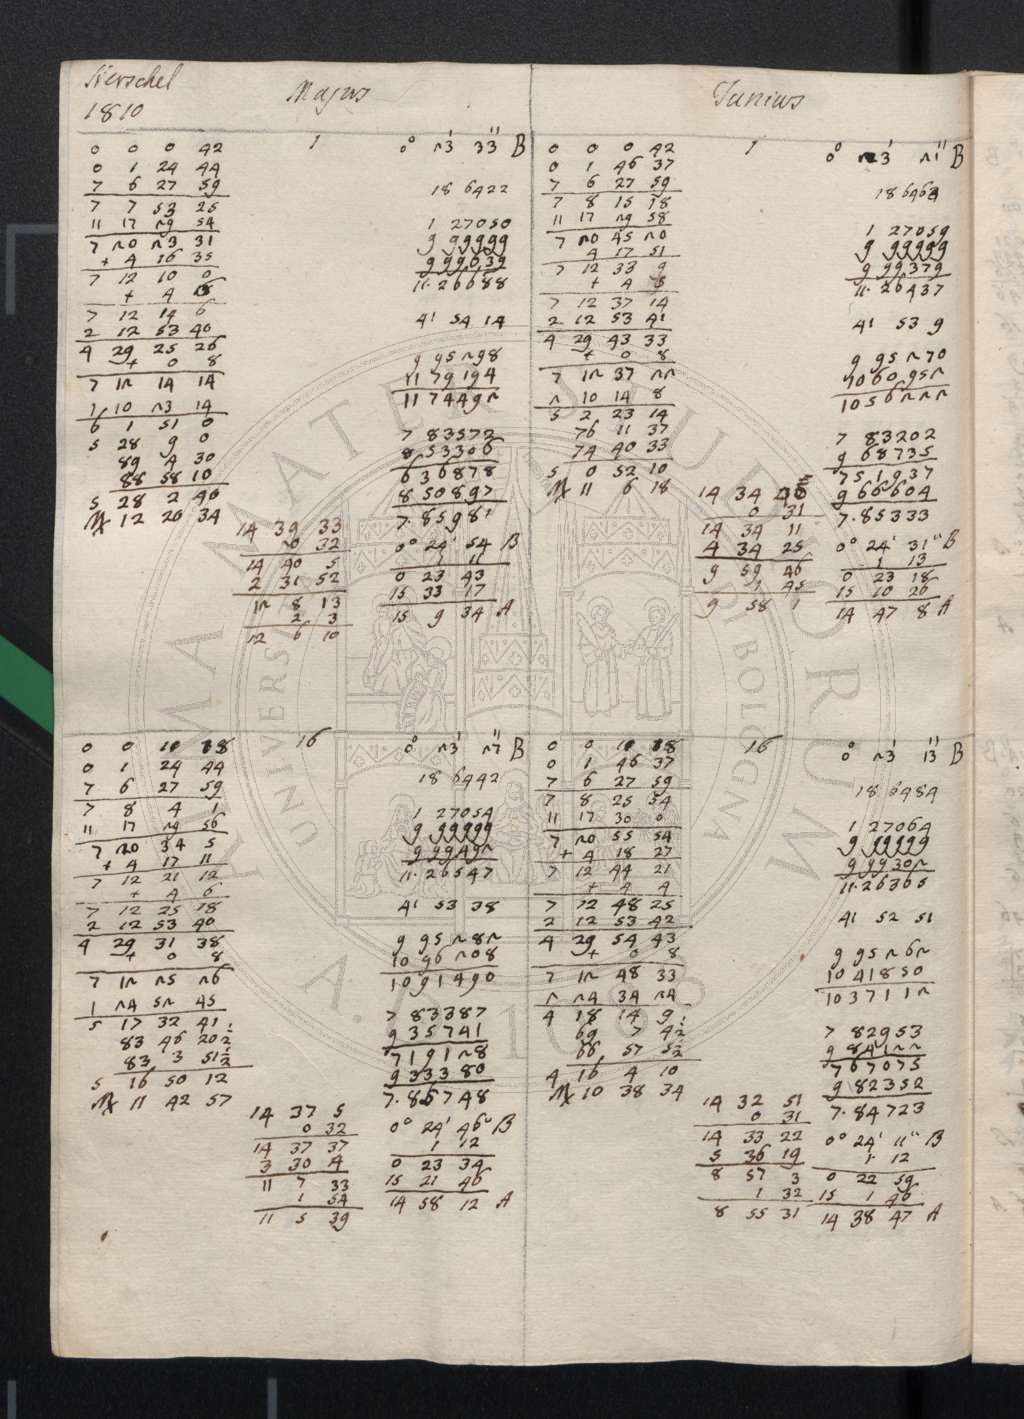 Herschel
1810
Majus
1
0 0 0 42
0 1 24 44
7 6 27 59
7 7 53 25
11 17 29 54
7 20 23 31
+ 4 16 35
7 12 10 0
+ 4 6
7 12 14 6
2 12 53 40
4 29 25 26
+ 0 8
7 12 14 14
1 10 23 14
6 1 51 0
5 28 9 0
89 4 30
88 58 10
5 28 2 40
♏ 12 26 34
14 39 33
20 32
14 40 5
2 31 52
12 8 13
2 3
12 6 10
0° 23' 33'' B
18 6422
1 27050
9 99999
9 99639
11.26688
41 54 14
9 95298
11 79194
11 74492
7 83572
8 53306
6 36878
8 50897
7.85981
0° 24' 54 B
1 11
0 23 43
15 33 17
15 9 34 A
Junius
1
0 0 0 42
0 1 46 37
7 6 27 59
7 8 15 18
11 17 29 58
7 20 45 20
4 17 51
7 12 33 9
+ 4 5
7 12 37 14
2 12 53 41
4 29 43 33
+ 0 8
7 12 37 22
2 10 14 8
5 2 23 14
76 11 37
74 40 33
5 0 52 10
♏ 11 6 18
14 34
0 31
14 34 11
4 34 25
9 59 46
1 45
9 58 1
0° 23' 21'' B
18 6464
1 27059
9 99999
9 99379
11.26437
41 53 9
9 95270
10 60952
10 56222
7 83202
9 68735
7 51937
9 66604
7.85333
0° 24' 31'' B
1 13
0 23 18
15 10 26
14 47 8 A
16
0 0 10 38
0 1 24 44
7 6 27 59
7 8 4 1
11 17 29 56
7 20 34 5
+ 4 17 11
7 12 21 12
+ 4 6
7 12 25 18
2 12 53 40
4 29 31 38
+ 0 8
7 12 25 26
1 24 52 45
5 17 32 41
83 46 20½
83 3 51½
5 16 50 12
♏ 11 42 57
14 37 5
0 32
14 37 37
3 30 4
11 7 33
1 54
11 5 39
0° 23' 27'' B
18 6442
1 27054
9 99999
9 99492
11.26547
41 53 38
9 95282
10 96208
10 91490
7 83387
9 35741
7 19128
9 33380
7.86748
0° 24' 46'' B
1 12
0 23 34
15 21 46
14 58 12 A
16
0 0 10 38
0 1 46 37
7 6 27 59
7 8 25 34
11 17 30 0
7 20 55 54
+ 4 18 27
7 12 44 21
+ 4 4
7 12 48 25
2 12 53 42
4 29 54 43
+ 0 8
7 12 48 33
2 24 34 24
4 18 14 9
69 7 4½
66 57 5½
4 16 4 10
♏ 10 38 34
14 32 51
0 31
14 33 22
5 36 19
8 57 3
1 32
8 55 31
0° 23' 13'' B
18 6484
1 27064
9 99999
9 99302
11.26365
41 52 51
9 95262
10 41850
10 37112
7 82953
9 84122
7 67075
9 82352
7.84723
0° 24' 11'' B
1 12
0 22 59
15 1 46
14 38 47 A
ALMA MATER STUDIORUM
UNIVERSITAS BONONIENSIS
A.D. 1088